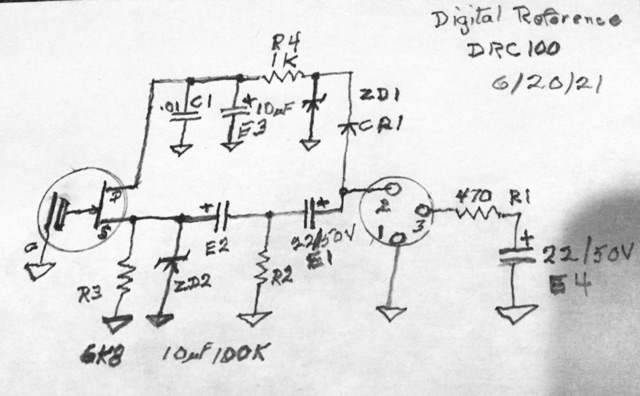 Digital Reference
DRC100
6/20/21
R4
1K
.01 C1
+ 10µF
E3
ZD1
CR1
D
S
G
+
E2
+
22/50V
E1
2
1
3
470 R1
+
22/50V
E4
R3
ZD2
R2
6K8 10µF 100K